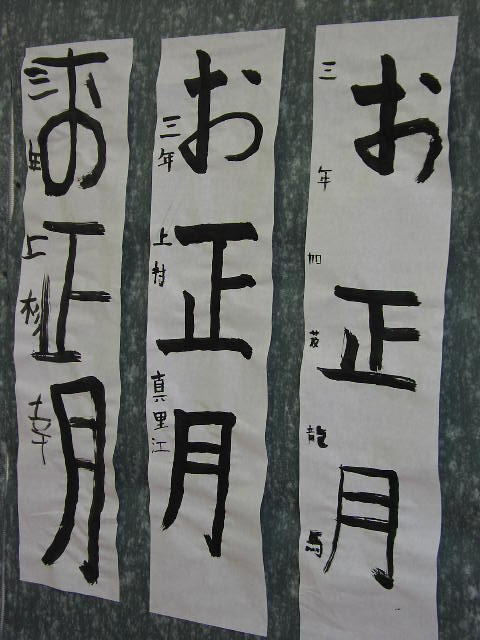 お正月
三年 加茂 龍馬
お正月
三年 上村 真里江
お正月
三 上杉 幸